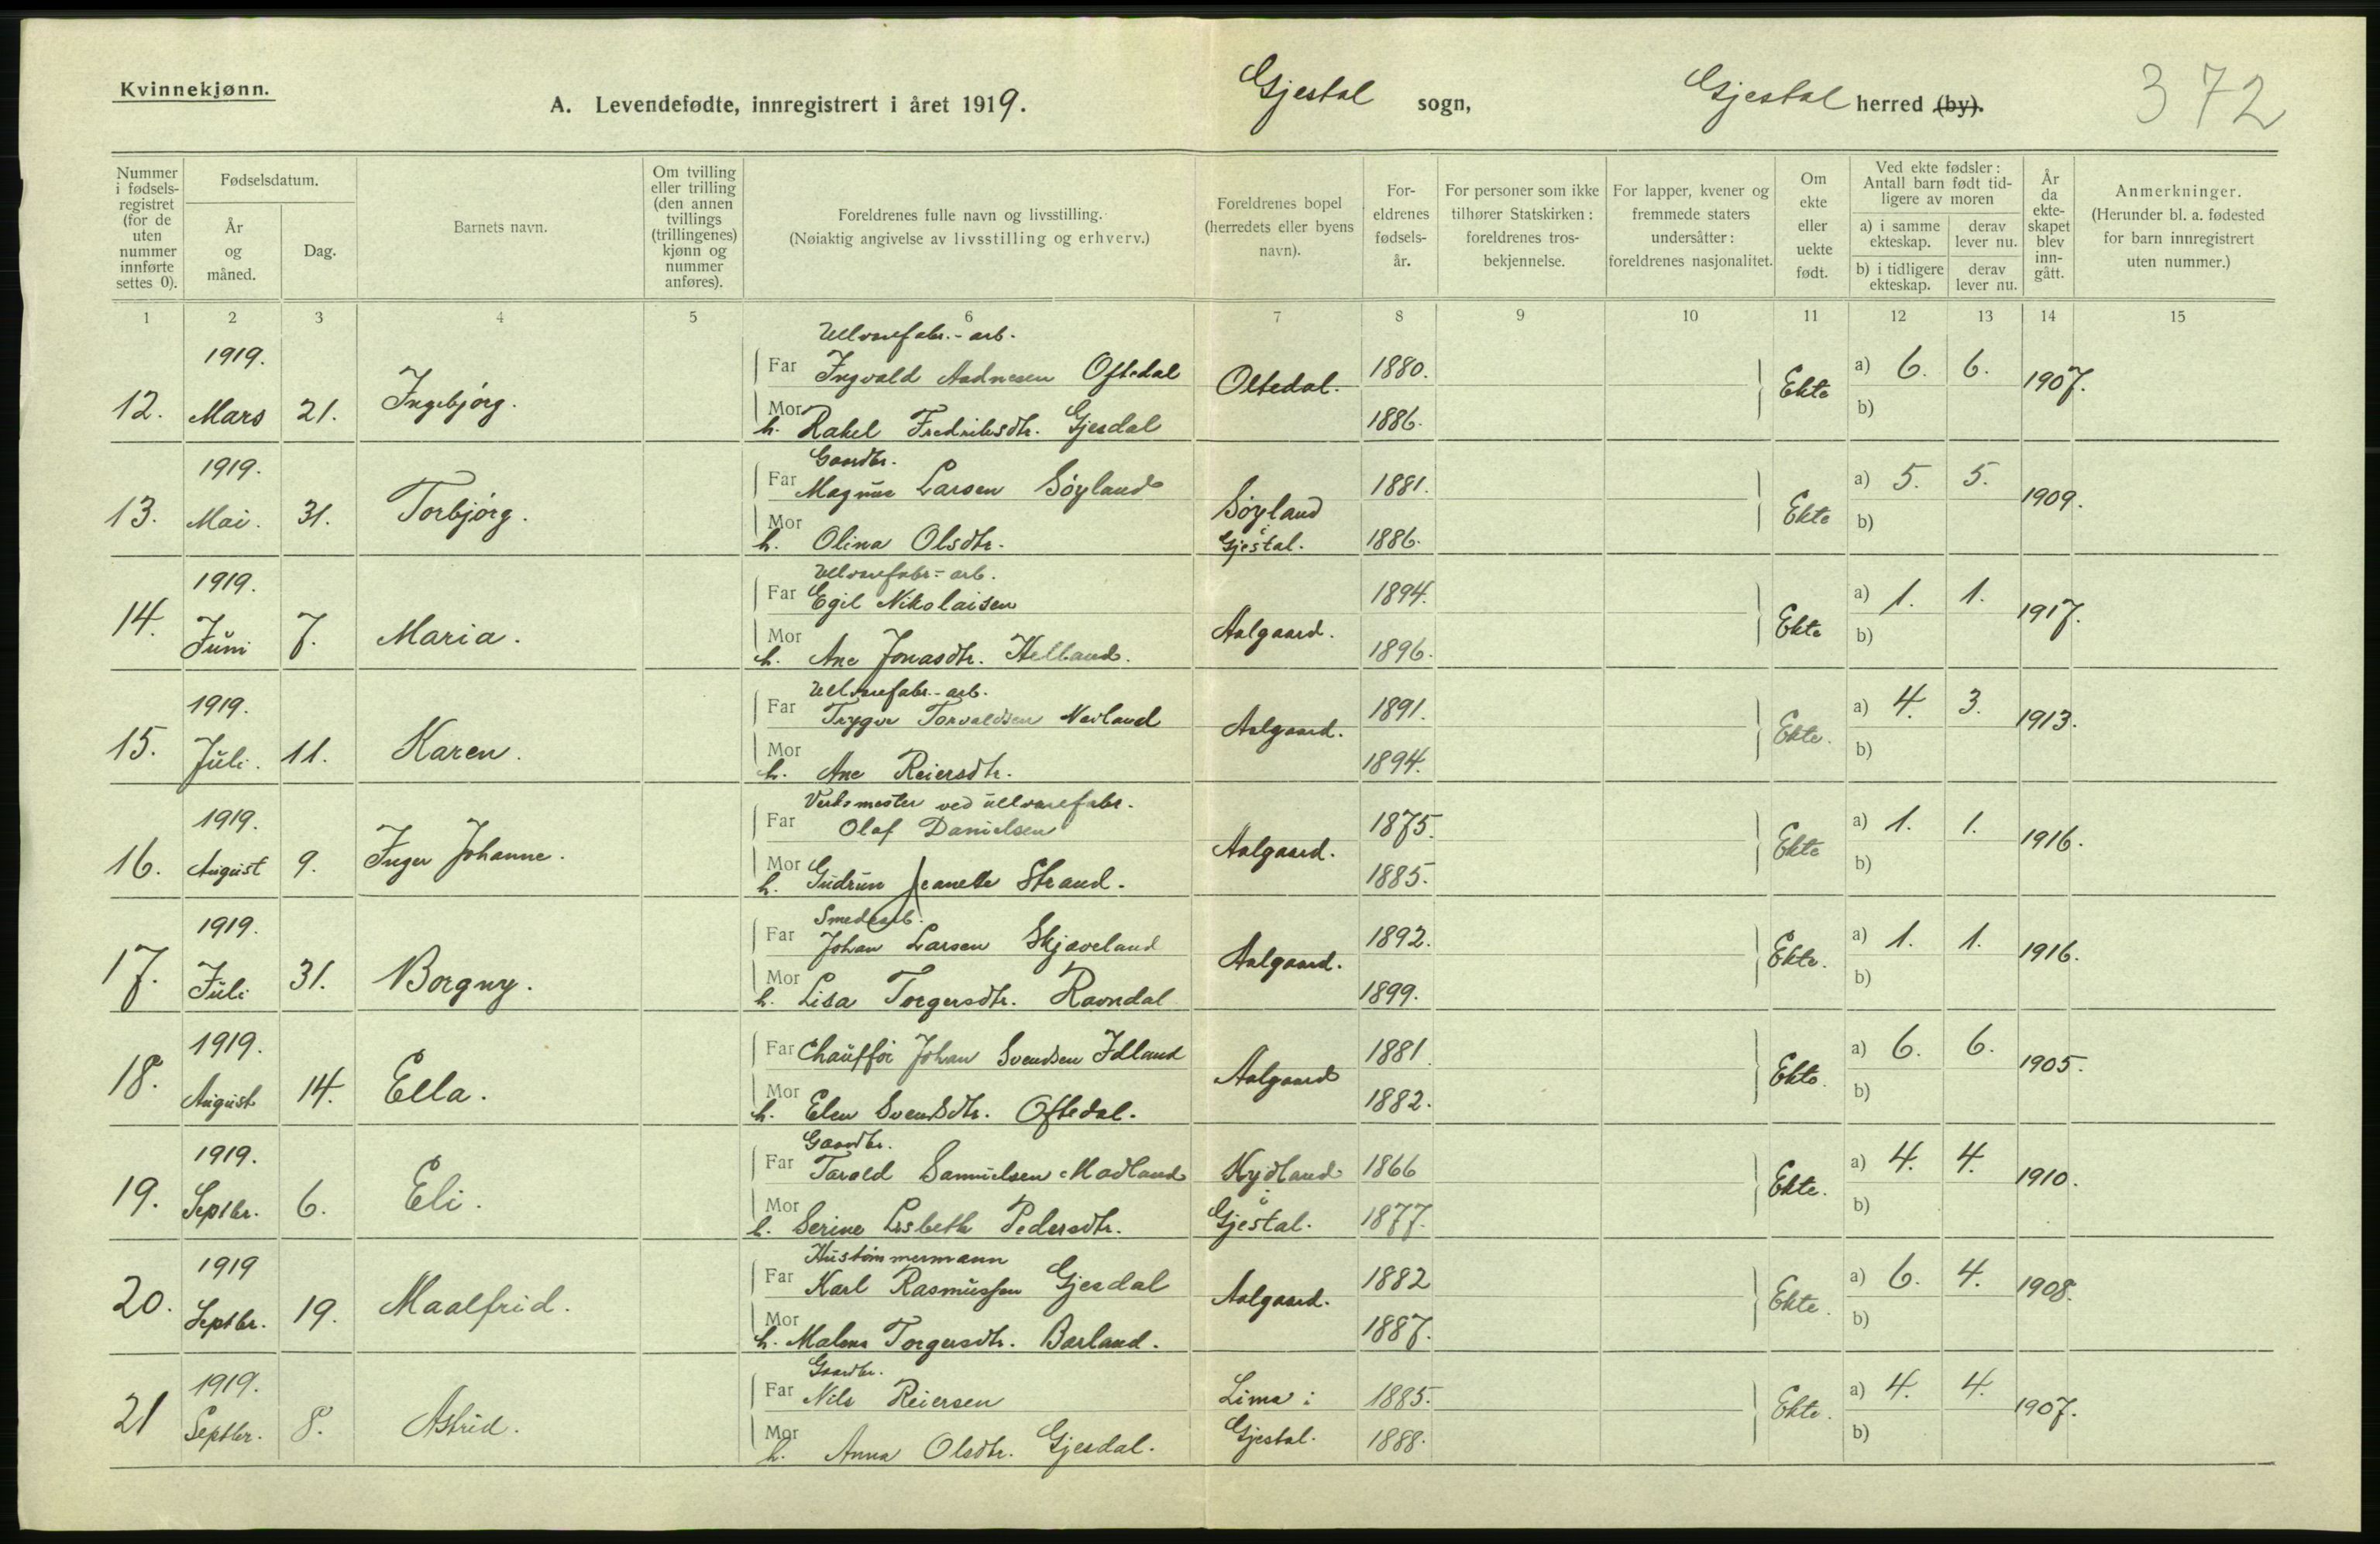 Kvinnekjønn.
A. Levendefødte, innregistrert i året 1919.
Gjestal sogn, Gjestal herred (by).
372
Nummer i fødselsregistret (for de uten nummer innførte settes 0).
Fødselsdatum.
År og måned.
Dag.
Barnets navn.
Om tvilling eller trilling (den annen tvillings (trillingenes) kjønn og nummer anføres).
Foreldrenes fulle navn og livsstilling.
(Nøiaktig angivelse av livsstilling og erhverv.)
Foreldrenes bopel (herredets eller byens navn).
Foreldrenes fødselsår.
For personer som ikke tilhører Statskirken: foreldrenes trosbekjennelse.
For lapper, kvener og fremmede staters undersåtter: foreldrenes nasjonalitet.
Om ekte eller uekte født.
Ved ekte fødsler: Antall barn født tidligere av moren
a) i samme ekteskap. derav lever nu.
b) i tidligere ekteskap. derav lever nu.
År da ekteskapet blev inngått.
Anmerkninger.
(Herunder bl. a. fødested for barn innregistrert uten nummer.)
1 2 3 4 5 6 7 8 9 10 11 12 13 14 15
Ullvarefabr.-arb.
1919. Far Ingvald Aadnesen Oftedal 1880. a) 6. 6.
12. Mars 21. Ingebjørg. Oltedal. Ekte 1907.
Mor h. Rakel Fredriksdtr. Gjesdal 1886. b)
Gaardbr.
1919. Far Magnus Larsen Søyland 1881. a) 5. 5.
13. Mai. 31. Torbjørg. Søyland i Gjestal. Ekte 1909.
Mor h. Olina Olsdtr. 1886. b)
Ullvarefabr.-arb.
1919. Far Egil Nikolaisen 1894. a) 1. 1.
14. Juni 7. Maria. Aalgaard. Ekte 1917.
Mor h. Ane Jonasdtr. Helland. 1896. b)
Ullvarefabr.-arb.
1919. Far Trygve Torvaldsen Nevland 1891. a) 4. 3.
15. Juli. 11. Karen. Aalgaard. Ekte. 1913.
Mor h. Ane Reiersdtr. 1894. b)
Verksmester ved ullvarefabr.
1919. Far Olaf Danielsen 1875. a) 1. 1.
16. August 9. Inger Johanne. Aalgaard. Ekte 1916.
Mor h. Gudrun Jeanette Strand. 1885. b)
Smedearb.
1919. Far Johan Larsen Skjæveland 1892. a) 1. 1.
17. Juli 31. Borgny. Aalgaard. Ekte. 1916.
Mor h. Lisa Torgersdtr. Ravndal 1899. b)
1919. Far Chauffør Johan Svendsen Idland 1881. a) 6. 6.
18. August 14. Ella. Aalgaard Ekte. 1905.
Mor h. Elen Svensdtr. Oftedal. 1882. b)
Gaardbr.
1919. Far Tarald Samuelsen Madland 1866 a) 4. 4.
19. Septbr. 6. Eli. Kydland i Gjestal. Ekte. 1910.
Mor h. Serine Lisbeth Pedersdtr. 1877. b)
Hustømmermann
1919 Far Karl Rasmussen Gjesdal 1882 a) 6. 4.
20. Septbr. 19. Maalfrid. Aalgaard. Ekte. 1908.
Mor h. Malena Torgersdtr. Barland. 1887. b)
Gaardbr.
1919. Far Nils Reiersen 1885. a) 4. 4.
21 Septbr. 8. Astrid. Lima i Gjestal. Ekte. 1907.
Mor h. Anna Olsdtr. Gjesdal. 1888. b)